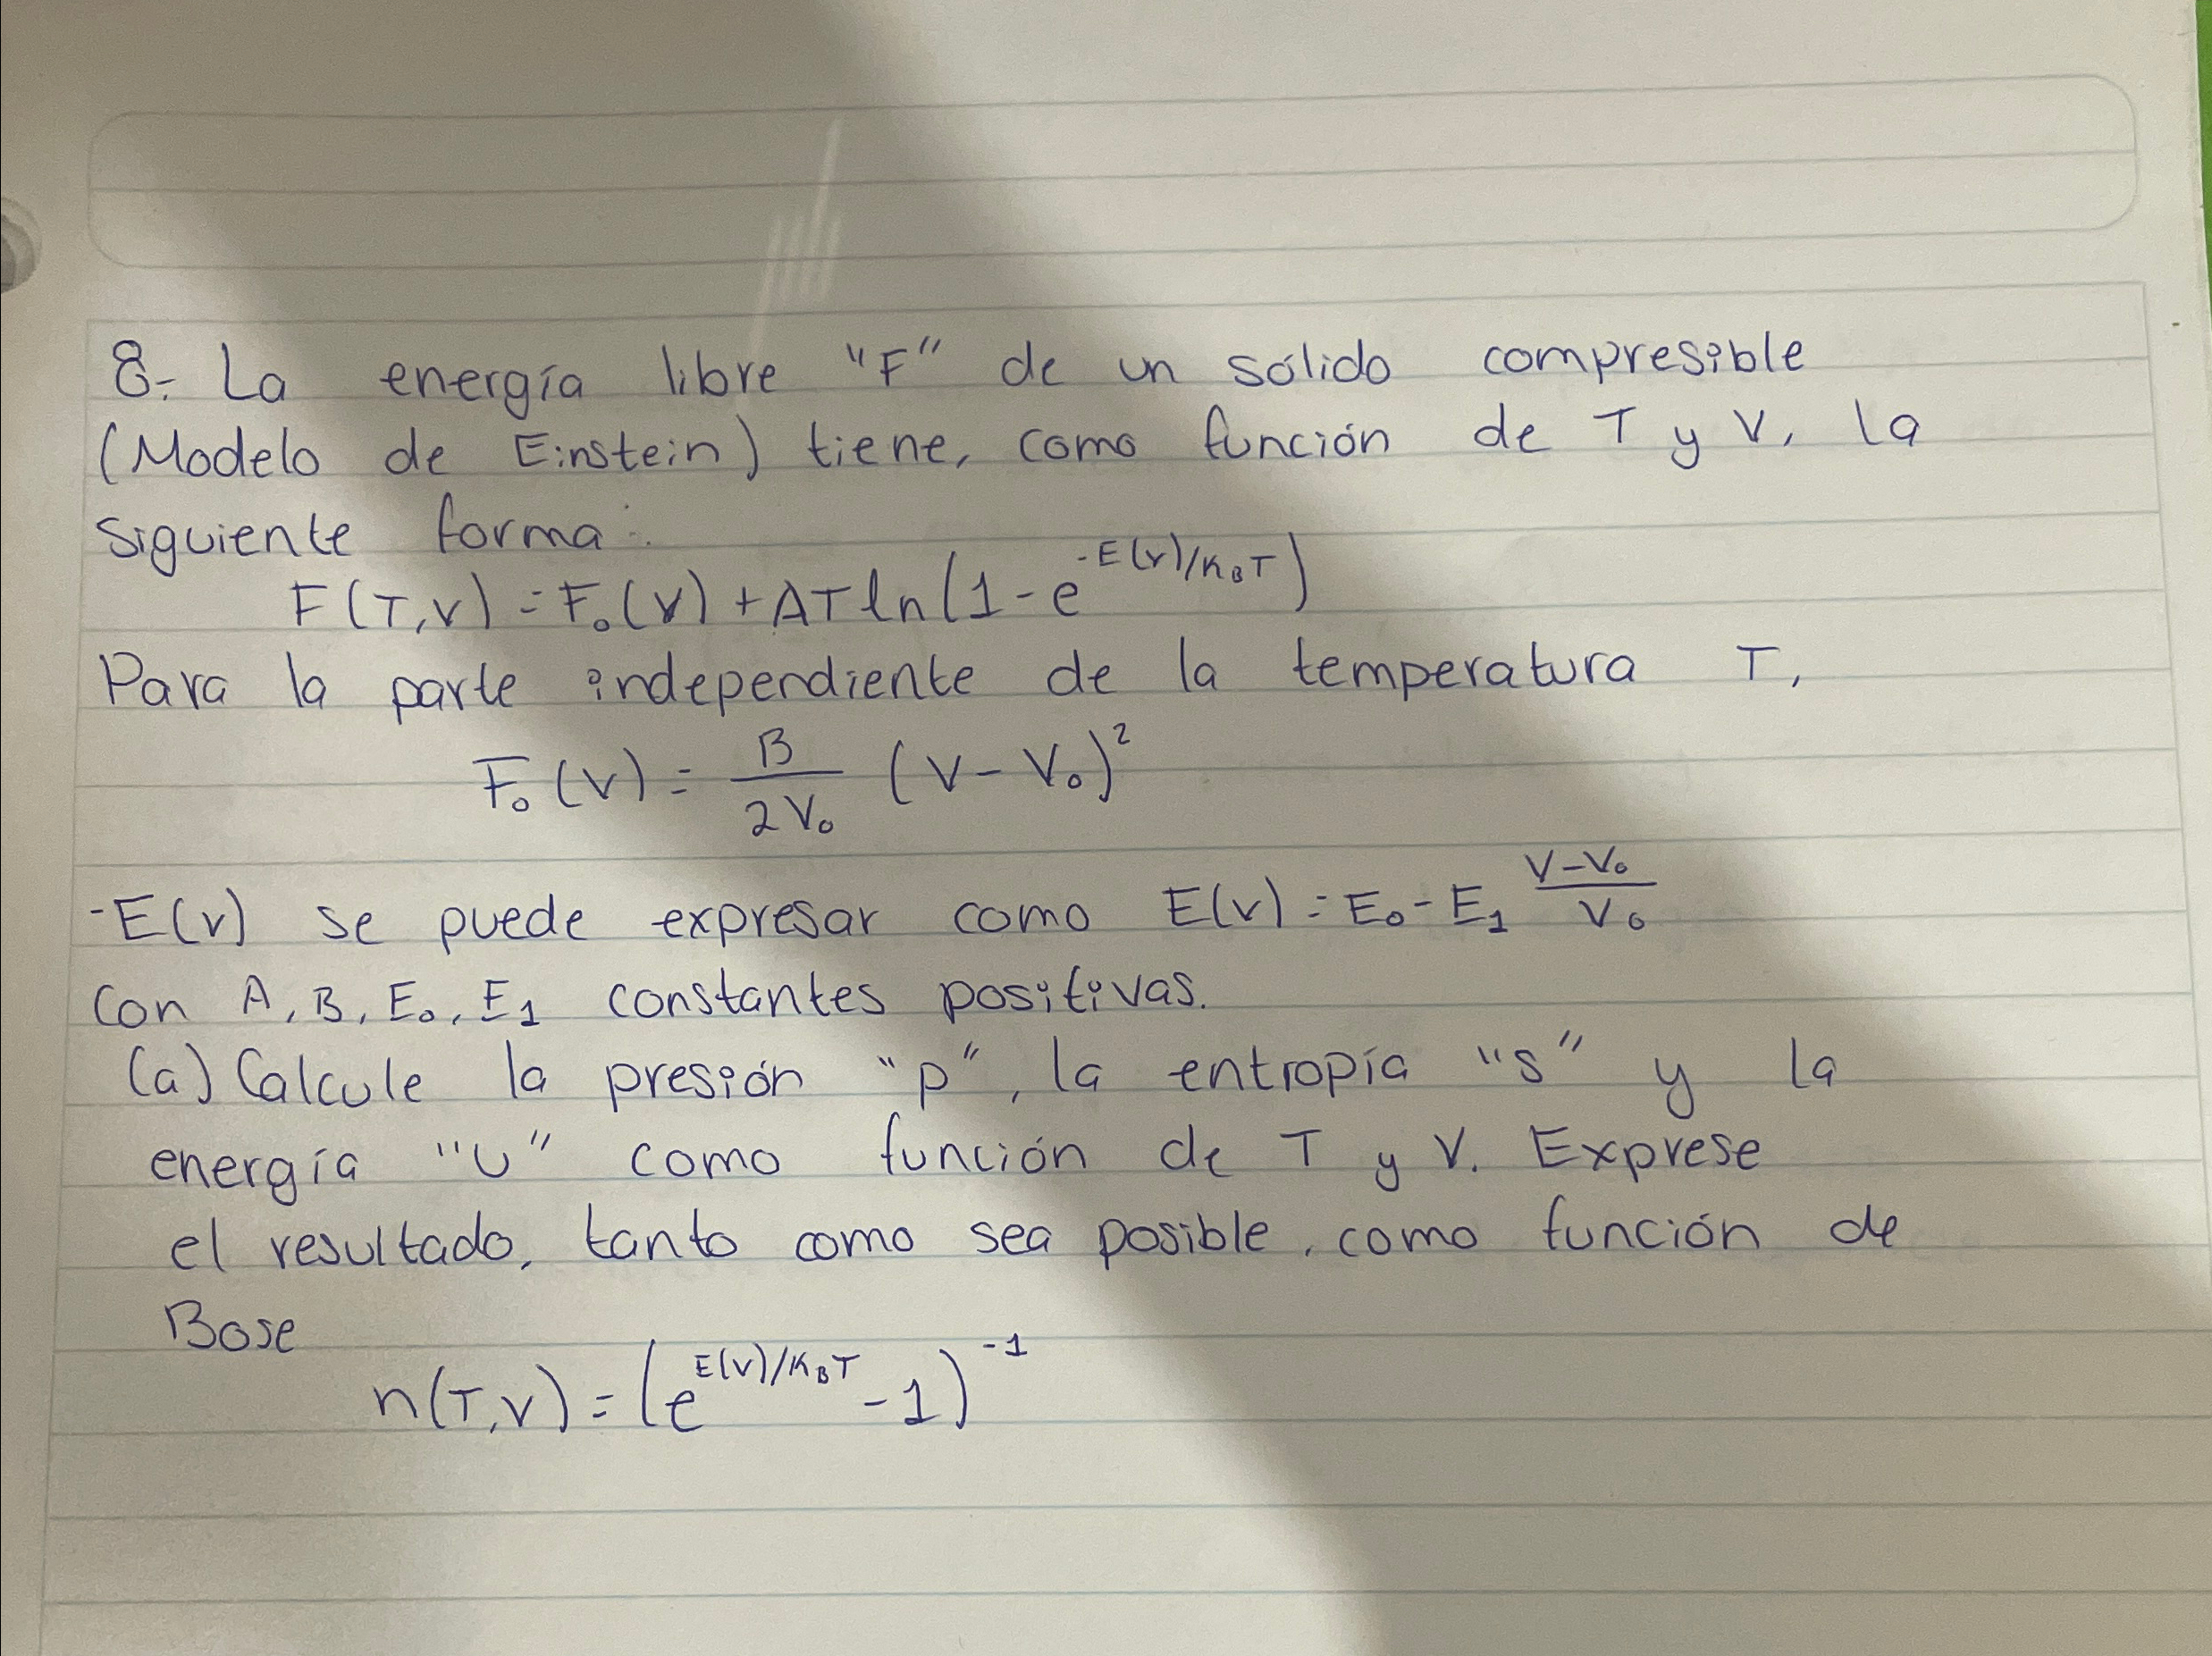 8.- La energía libre "F" de un sólido compresible
(Modelo de Einstein) tiene, como función de T y V, la
siguiente forma:
F(T,V) = F₀(V) + AT ln(1 - e^{-E(V)/K_BT})
Para la parte independiente de la temperatura T,
F₀(V) = \frac{B}{2V₀} (V - V₀)²
-E(V) se puede expresar como E(V) = E₀ - E₁ \frac{V-V₀}{V₀}
Con A, B, E₀, E₁ constantes positivas.
(a) Calcule la presión "p", la entropía "s" y la
energía "U" como función de T y V. Exprese
el resultado, tanto como sea posible, como función de
Bose
n(T,V) = (e^{E(V)/K_BT} - 1)^{-1}